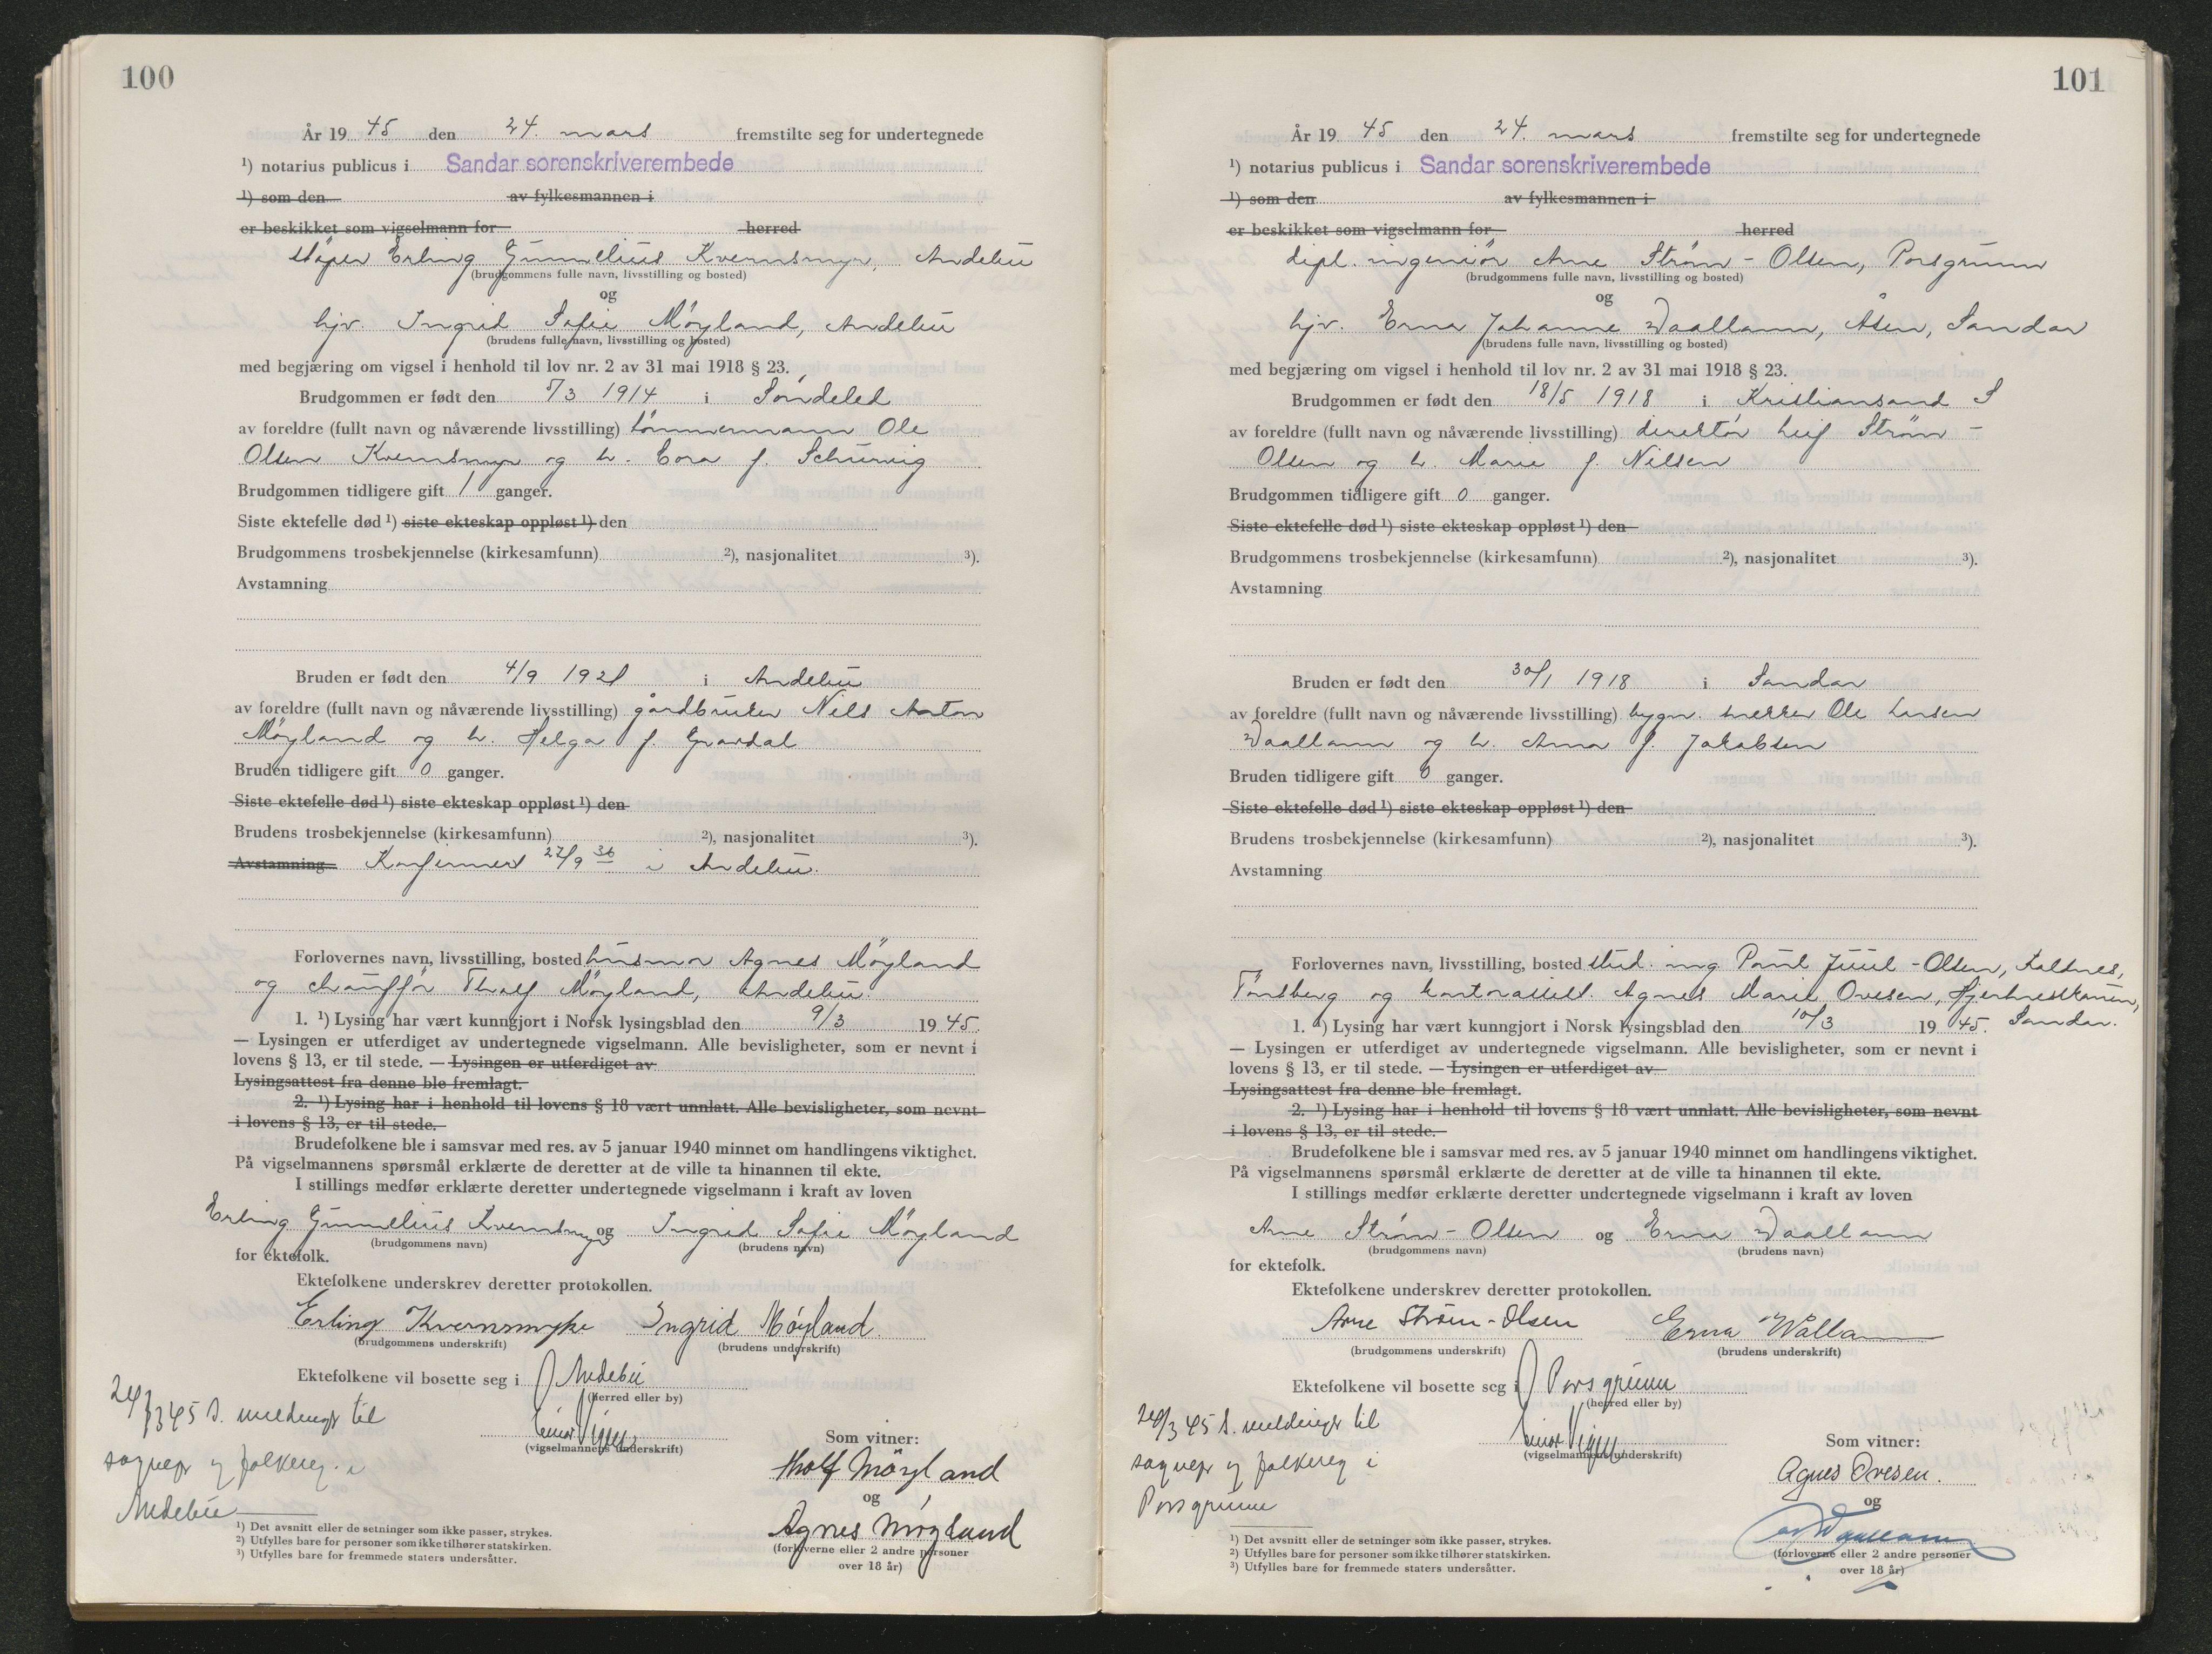 100
År 19 45 den 24. mars fremstilte seg for undertegnede
¹) notarius publicus i Sandar sorenskriverembede
¹) som den av fylkesmannen i
er beskikket som vigselmann for herred
støper Erling Gunnelius Kvernsmyr, Andebu
(brudgommens fulle navn, livsstilling og bosted)
og
hjv. Ingrid Sofie Møyland, Andebu
(brudens fulle navn, livsstilling og bosted)
med begjæring om vigsel i henhold til lov nr. 2 av 31 mai 1918 § 23.
Brudgommen er født den 5/3 1914 i Søndeled
av foreldre (fullt navn og nåværende livsstilling) tømmermann Ole
Olsen Kvernsmyr og h. Cora f.
Brudgommen tidligere gift 1 ganger.
Siste ektefelle død ¹) siste ekteskap oppløst ¹) den
Brudgommens trosbekjennelse (kirkesamfunn) ²), nasjonalitet ³).
Avstamning
Bruden er født den 4/9 1921 i Andebu
av foreldre (fullt navn og nåværende livsstilling) gårdbruker Nels Anton
Møyland og h. Helga f. Gravdal
Bruden tidligere gift 0 ganger.
Siste ektefelle død ¹) siste ekteskap oppløst ¹) den
Brudens trosbekjennelse (kirkesamfunn) ²), nasjonalitet ³).
Avstamning Konfirmert 27/9 36 i Andebu.
Forlovernes navn, livsstilling, bosted husmor Agnes Møyland
og chauffør Tholf Møyland, Andebu.
1. ¹) Lysing har vært kunngjort i Norsk lysingsblad den 9/3 1945.
— Lysingen er utferdiget av undertegnede vigselmann. Alle bevisligheter, som er nevnt i
lovens § 13, er til stede. — Lysingen er utferdiget av
Lysingsattest fra denne ble fremlagt.
2. ¹) Lysing har i henhold til lovens § 18 vært unnlatt. Alle bevisligheter, som nevnt
i lovens § 13, er til stede.
Brudefolkene ble i samsvar med res. av 5 januar 1940 minnet om handlingens viktighet.
På vigselmannens spørsmål erklærte de deretter at de ville ta hinannen til ekte.
I stillings medfør erklærte deretter undertegnede vigselmann i kraft av loven
Erling Gunnelius Kvernsmyr og Ingrid Sofie Møyland
(brudgommens navn) (brudens navn)
for ektefolk.
Ektefolkene underskrev deretter protokollen.
Erling Kvernsmyhr Ingrid Møyland.
(brudgommens underskrift) (brudens underskrift)
Ektefolkene vil bosette seg i Andebu
(herred eller by)
24/3 45 s. meldinger til
sognepr og folkereg. i
Andebu
Einar Vigen
(vigselmannens underskrift)
Som vitner:
Tholf Møyland
og
Agnes Møyland
(forloverne eller 2 andre personer
over 18 år)
¹) Det avsnitt eller de setninger som ikke passer, strykes.
²) Utfylles bare for personer som ikke tilhører statskirken.
³) Utfylles bare for fremmede staters undersåtter.
101
År 19 45 den 24. mars fremstilte seg for undertegnede
¹) notarius publicus i Sandar sorenskriverembede
¹) som den av fylkesmannen i
er beskikket som vigselmann for herred
dipl. ingeniør Arne Strøm - Olsen, Porsgrunn
(brudgommens fulle navn, livsstilling og bosted)
og
hjv. Erna Johanne Waallann, Åsen, Sandar
(brudens fulle navn, livsstilling og bosted)
med begjæring om vigsel i henhold til lov nr. 2 av 31 mai 1918 § 23.
Brudgommen er født den 18/5 1918 i Kristiansand S
av foreldre (fullt navn og nåværende livsstilling) direktør Leif Strøm -
Olsen og h. Marie f. Nilsen
Brudgommen tidligere gift 0 ganger.
Siste ektefelle død ¹) siste ekteskap oppløst ¹) den
Brudgommens trosbekjennelse (kirkesamfunn) ²), nasjonalitet ³).
Avstamning
Bruden er født den 30/1 1918 i Sandar
av foreldre (fullt navn og nåværende livsstilling) bygn. snekker Ole Larsen
Waallann og h. Anna f. Jakobsen
Bruden tidligere gift 0 ganger.
Siste ektefelle død ¹) siste ekteskap oppløst ¹) den
Brudens trosbekjennelse (kirkesamfunn) ²), nasjonalitet ³).
Avstamning
Forlovernes navn, livsstilling, bosted stud. ing Paul Juul - Olsen, Kaldnes,
Tønsberg og kontorassist. Agnes Marie Ovesen, Hjertnesskauen,
Sandar.
1. ¹) Lysing har vært kunngjort i Norsk lysingsblad den 10/3 19 45.
— Lysingen er utferdiget av undertegnede vigselmann. Alle bevisligheter, som er nevnt i
lovens § 13, er til stede. — Lysingen er utferdiget av
Lysingsattest fra denne ble fremlagt.
2. ¹) Lysing har i henhold til lovens § 18 vært unnlatt. Alle bevisligheter, som nevnt
i lovens § 13, er til stede.
Brudefolkene ble i samsvar med res. av 5 januar 1940 minnet om handlingens viktighet.
På vigselmannens spørsmål erklærte de deretter at de ville ta hinannen til ekte.
I stillings medfør erklærte deretter undertegnede vigselmann i kraft av loven
Arne Strøm - Olsen og Erna Waallann
(brudgommens navn) (brudens navn)
for ektefolk.
Ektefolkene underskrev deretter protokollen.
Arne Strøm - Olsen Erna Wållann
(brudgommens underskrift) (brudens underskrift)
Ektefolkene vil bosette seg i Porsgrunn
(herred eller by)
24/3 45 s. meldinger til
sognepr og folkereg i
Porsgrunn
Einar Vigen
(vigselmannens underskrift)
Som vitner:
Agnes Ovesen.
og
(forloverne eller 2 andre personer
over 18 år)
¹) Det avsnitt eller de setninger som ikke passer, strykes.
²) Utfylles bare for personer som ikke tilhører statskirken.
³) Utfylles bare for fremmede staters undersåtter.